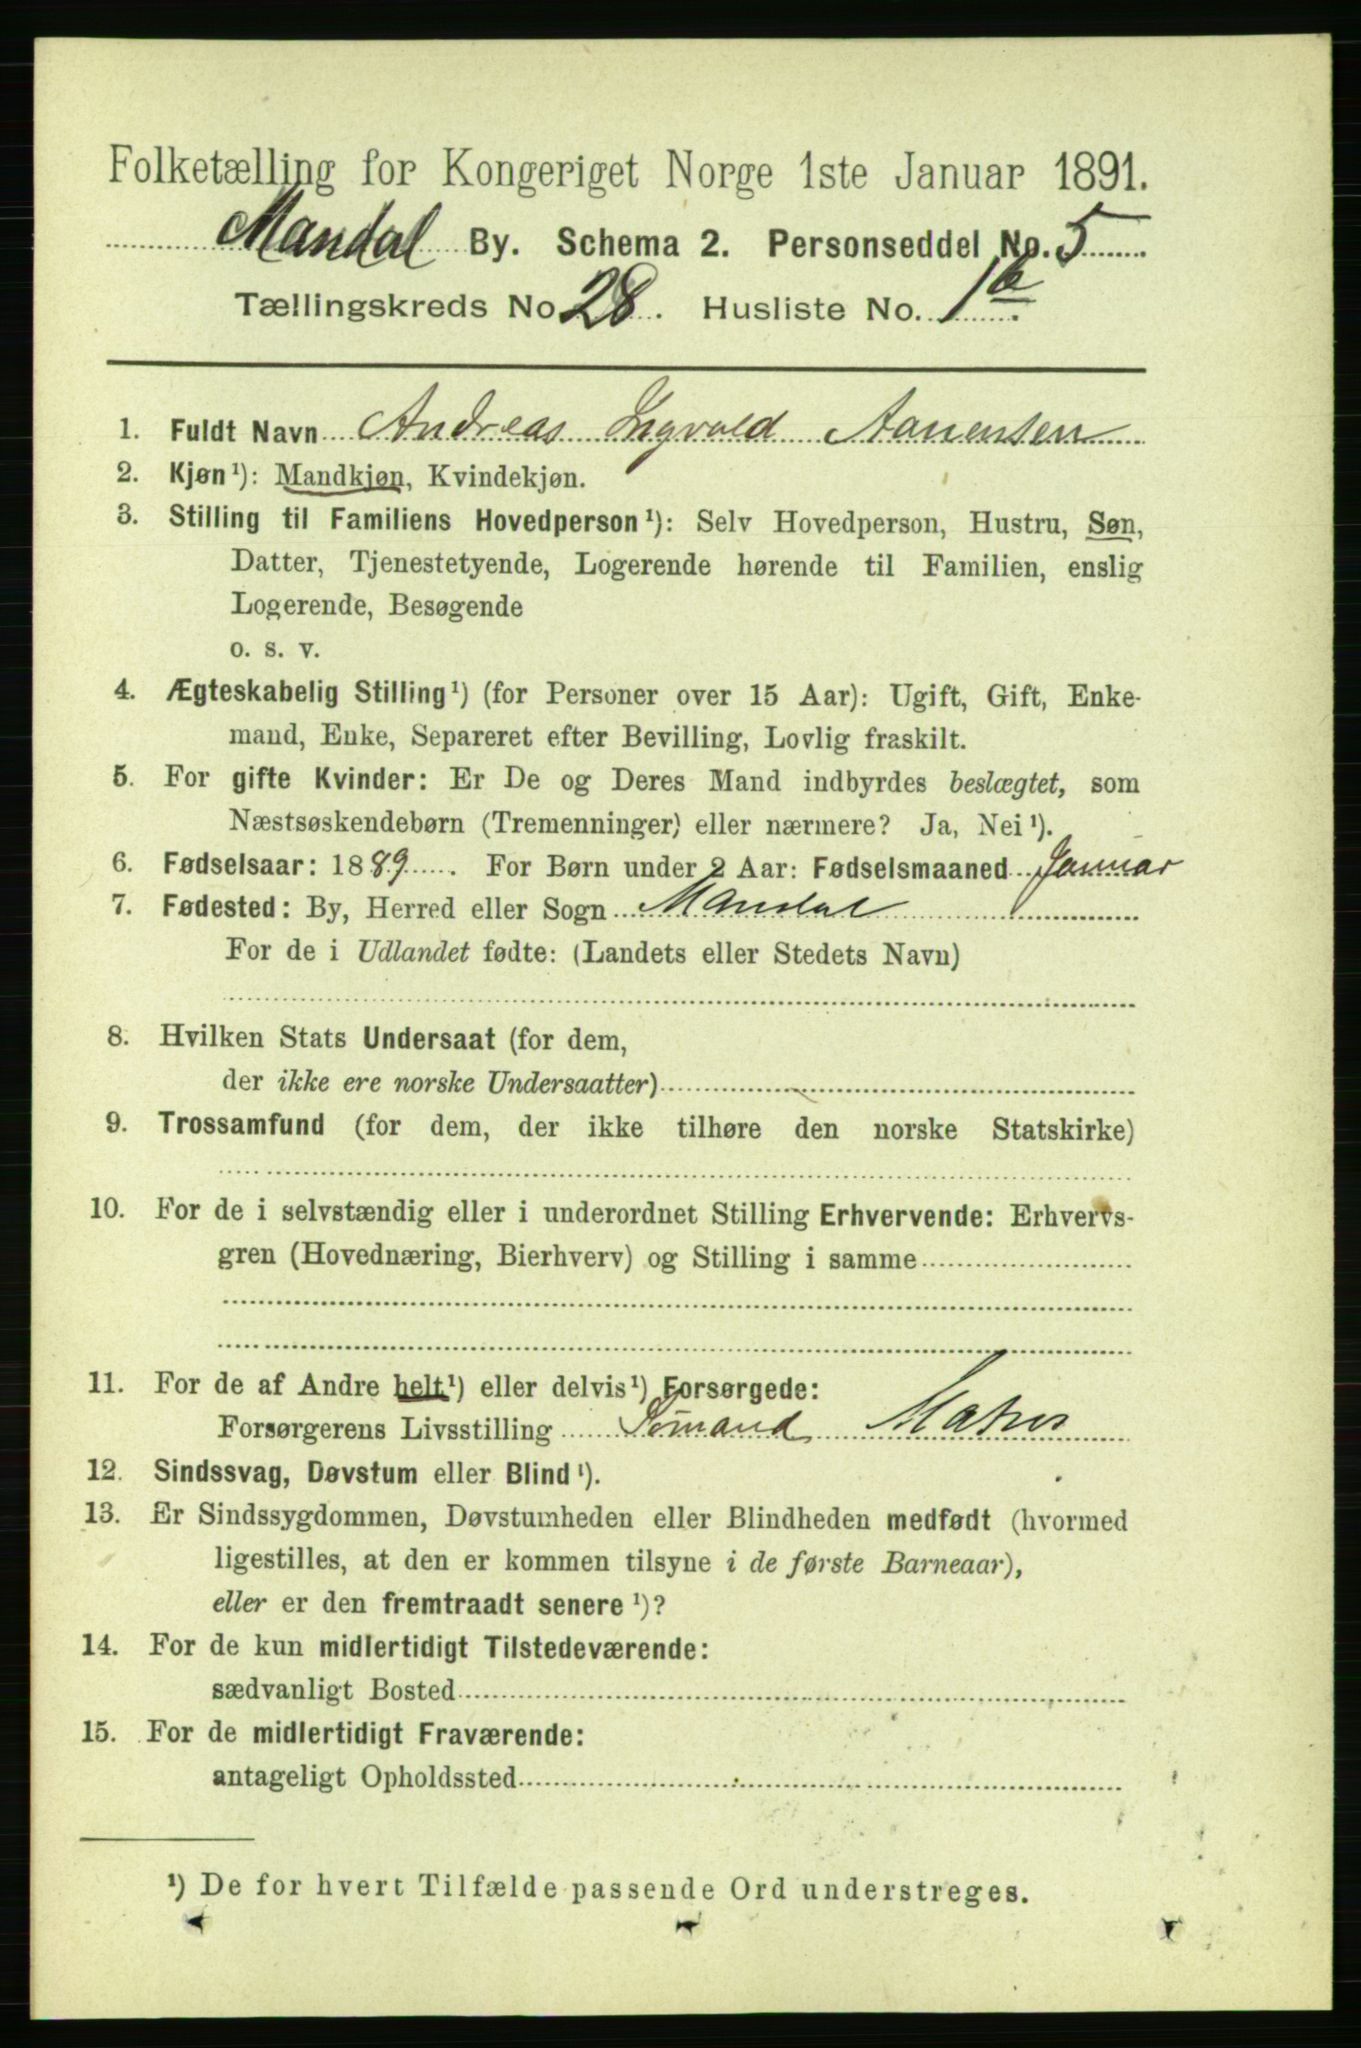 Folketælling for Kongeriget Norge 1ste Januar 1891.
Mandal By. Schema 2. Personseddel No. 5
Tællingskreds No. 28. Husliste No. 1b.
1. Fuldt Navn Andreas Ingvald Aanensen
2. Kjøn¹): Mandkjøn, Kvindekjøn.
3. Stilling til Familiens Hovedperson¹): Selv Hovedperson, Hustru, Søn,
Datter, Tjenestetyende, Logerende hørende til Familien, enslig
Logerende, Besøgende
o. s. v.
4. Ægteskabelig Stilling¹) (for Personer over 15 Aar): Ugift, Gift, Enke-
mand, Enke, Separeret efter Bevilling, Lovlig fraskilt.
5. For gifte Kvinder: Er De og Deres Mand indbyrdes beslægtet, som
Næstsøskendebørn (Tremenninger) eller nærmere? Ja, Nei¹).
6. Fødselsaar: 1889. For Børn under 2 Aar: Fødselsmaaned Januar
7. Fødested: By, Herred eller Sogn Mandal
For de i Udlandet fødte: (Landets eller Stedets Navn)
8. Hvilken Stats Undersaat (for dem,
der ikke ere norske Undersaatter)
9. Trossamfund (for dem, der ikke tilhøre den norske Statskirke)
10. For de i selvstændig eller i underordnet Stilling Erhvervende: Erhvervs-
gren (Hovednæring, Bierhverv) og Stilling i samme
11. For de af Andre helt¹) eller delvis¹) Forsørgede:
Forsørgerens Livsstilling Sømand Matros
12. Sindssvag, Døvstum eller Blind¹).
13. Er Sindssygdommen, Døvstumheden eller Blindheden medfødt (hvormed
ligestilles, at den er kommen tilsyne i de første Barneaar),
eller er den fremtraadt senere¹)?
14. For de kun midlertidigt Tilstedeværende:
sædvanligt Bosted
15. For de midlertidigt Fraværende:
antageligt Opholdssted
¹) De for hvert Tilfælde passende Ord understreges.